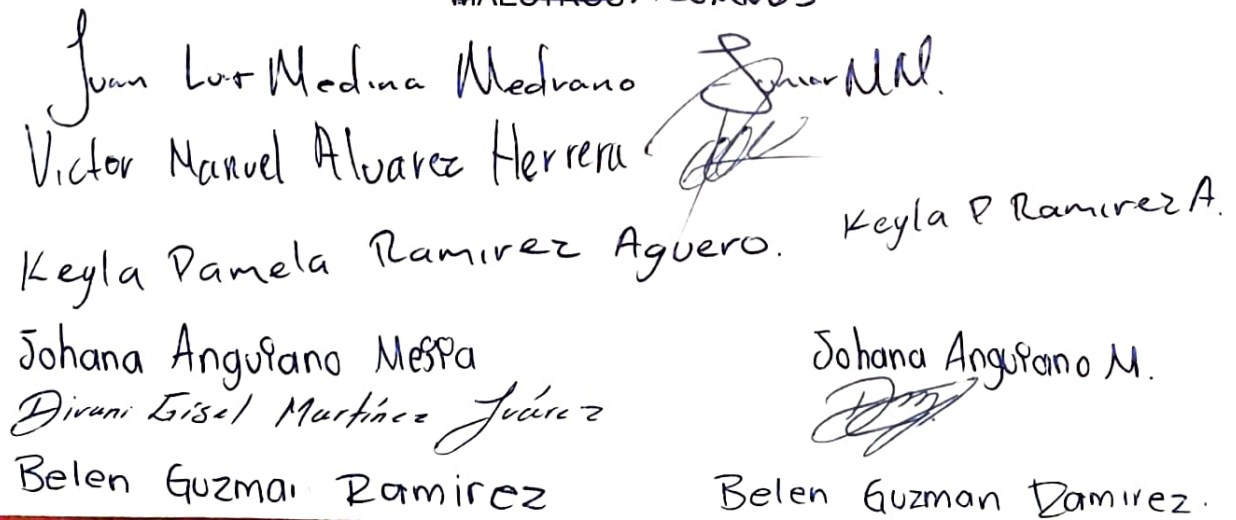 Juan Luis Medina Medrano Junior MM.
Victor Manuel Alvarez Herrera
Keyla Pamela Ramirez Aguero. Keyla P Ramirez A.
Johana Anguiano Mejia Johana Anguiano M.
Gisel Martínez Juárez
Belen Guzman Ramirez Belen Guzman Ramirez.